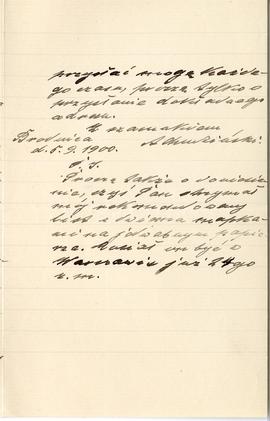 przysłać mogę każde-
go czasu, proszę tylko o
przysłanie dokładnego
adresu.
Z szacunkiem
Brodnica
d. 5. 9. 1900.
P. S.
Proszę także o doniesie-
nie, czyś Pan otrzymał
mój rekomendowany
list z dwiema mapka-
mi na jedwabnym papie-
rze. Musiał on być w
Warszawie już 24 go
z. m.